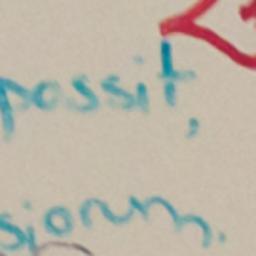 possit,
siorum.